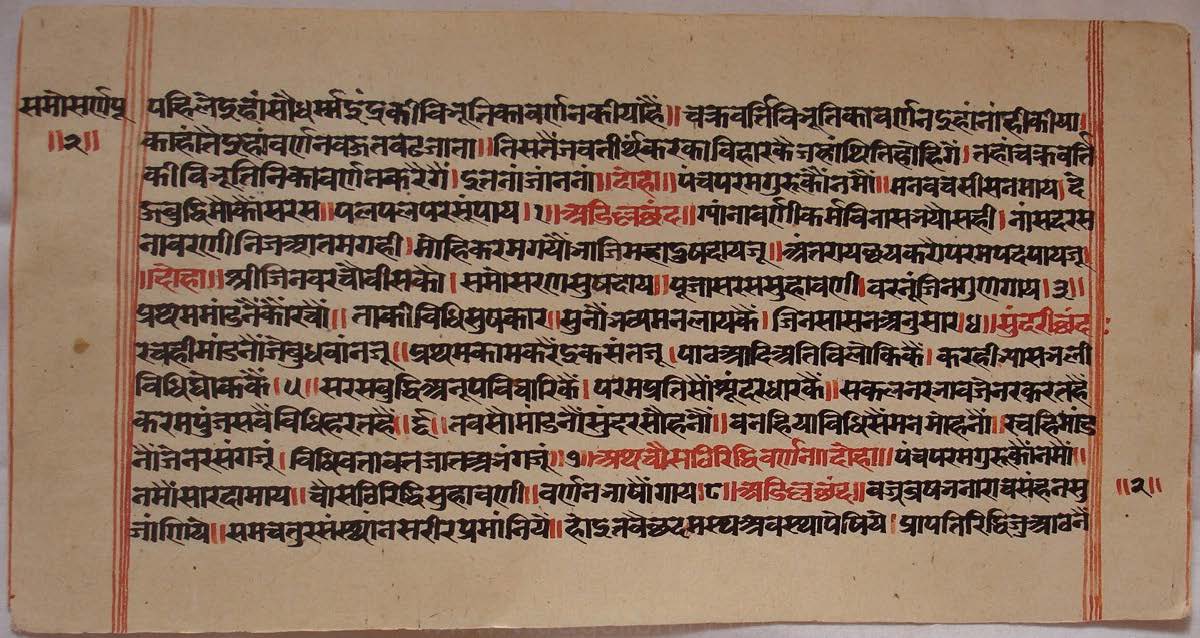 समोसर्णपू
॥२॥
पहिले इहां सौधर्म्म इंद्र की विभूति का वर्णन कीया है॥ चक्रवर्त्ति विभूति का वर्णन इहां नांही कीया।
काहां तै इहां वर्णन वजत वेढ जाना॥ तिस तैं जव तीर्थंकर का विहार कै जहां थिति होहिगै। तहां चक्रवर्त्ति
की विभूति निका वर्णन करैगै। इतनां जांननां॥ दोहा॥ पंच परम गुरु कौं नमौं॥ मन वच सीस नमाय। दे
उ बुद्धि मोकौं सरस॥ पल पल पर संपाय।१॥ अडिल्ल छंद॥ ग्यांनावर्णी कर्म विनास भयौ सही। नांस दरस
नावरणी निज आतम गही। मोहि करम गयौ भाजि महा दुषदाय जू॥ अंतराय छय करो परम पद पाय जू।
॥दोहा॥ श्री जिनवर चौवीस कौ। समोसरण सुषदाय॥ पूजा सरस सुहावणी। वरनूं जिन गुण गाय।३॥
प्रथम मांडनैं कौं रचौं॥ ताकी विधि सुषकार॥ सुनौं भव्य मन लाय कैं। जिन सासन अनुसार।४॥ सुंदरी छंद:
रचही मांडनौं जे बुधवांन जू॥ प्रथम काम करैं इक संत जू। पाव आदि अति विलोकि कैं। करही ग्यास भली
विधि घोक कैं।५॥ सरस बुद्धि अनूप विचारि कैं। परम प्रीति सौं सुंदर धारकैं॥ सकल नर भव जे नर करत हैं
करम पुंज सवै विधि हरत हैं॥६॥ तव सौ मांडनौं सुंदर सौहनौं॥ वनहि या विधि सैं मन मोहनौं॥ रचहि मांड
नौं जे नर संग जूं। विधि वतावत जात अनंग जूं।७॥ अथ चौसठि रिद्धि वर्णन॥ दोहा॥ पंच परम गुरु कौं नमौं॥
नमौं सारदा माय॥ चौसठि रिद्धि सुहावणी॥ वर्णन भाषौं गाय।८॥ अडिल्ल छंद॥ वज्र वृषभ नाराच संहनन सु
जांणिये॥ समचतुस्र संस्थांन सरीर प्रमांनियै॥ हौ इतवै छदमस्थ अवस्था पेषिये। प्रापति रिद्धि जु आवे नै
॥२॥